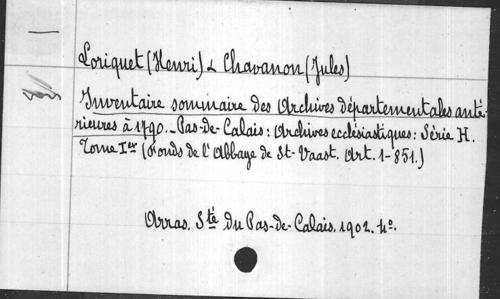 Loriquet (Henri) & Chavanon (Jules)
Inventaire sommaire des Archives départementales anté-
rieures à 1790. - Pas-de-Calais: Archives ecclésiastiques: Série H.
Tome Ier (Fonds de l'Abbaye de St-Vaast. Art. 1-851.)
Arras. Sté du Pas-de-Calais. 1902. 4o.